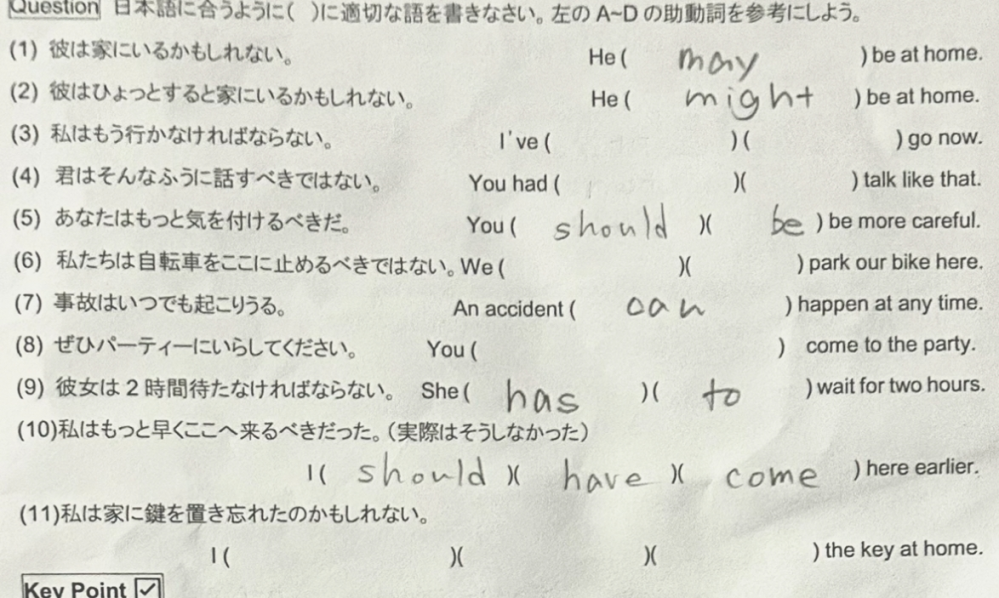 Question 日本語に合うように( )に適切な語を書きなさい。左の A~D の助動詞を参考にしよう。
(1) 彼は家にいるかもしれない。 He ( may ) be at home.
(2) 彼はひょっとすると家にいるかもしれない。 He ( might ) be at home.
(3) 私はもう行かなければならない。 I've ( )( ) go now.
(4) 君はそんなふうに話すべきではない。 You had ( )( ) talk like that.
(5) あなたはもっと気を付けるべきだ。 You ( should )( be ) be more careful.
(6) 私たちは自転車をここに止めるべきではない。We ( )( ) park our bike here.
(7) 事故はいつでも起こりうる。 An accident ( can ) happen at any time.
(8) ぜひパーティーにいらしてください。 You ( ) come to the party.
(9) 彼女は2時間待たなければならない。 She ( has )( to ) wait for two hours.
(10)私はもっと早くここへ来るべきだった。(実際はそうしなかった)
I ( should )( have )( come ) here earlier.
(11)私は家に鍵を置き忘れたのかもしれない。
I ( )( )( ) the key at home.
Key Point ☑